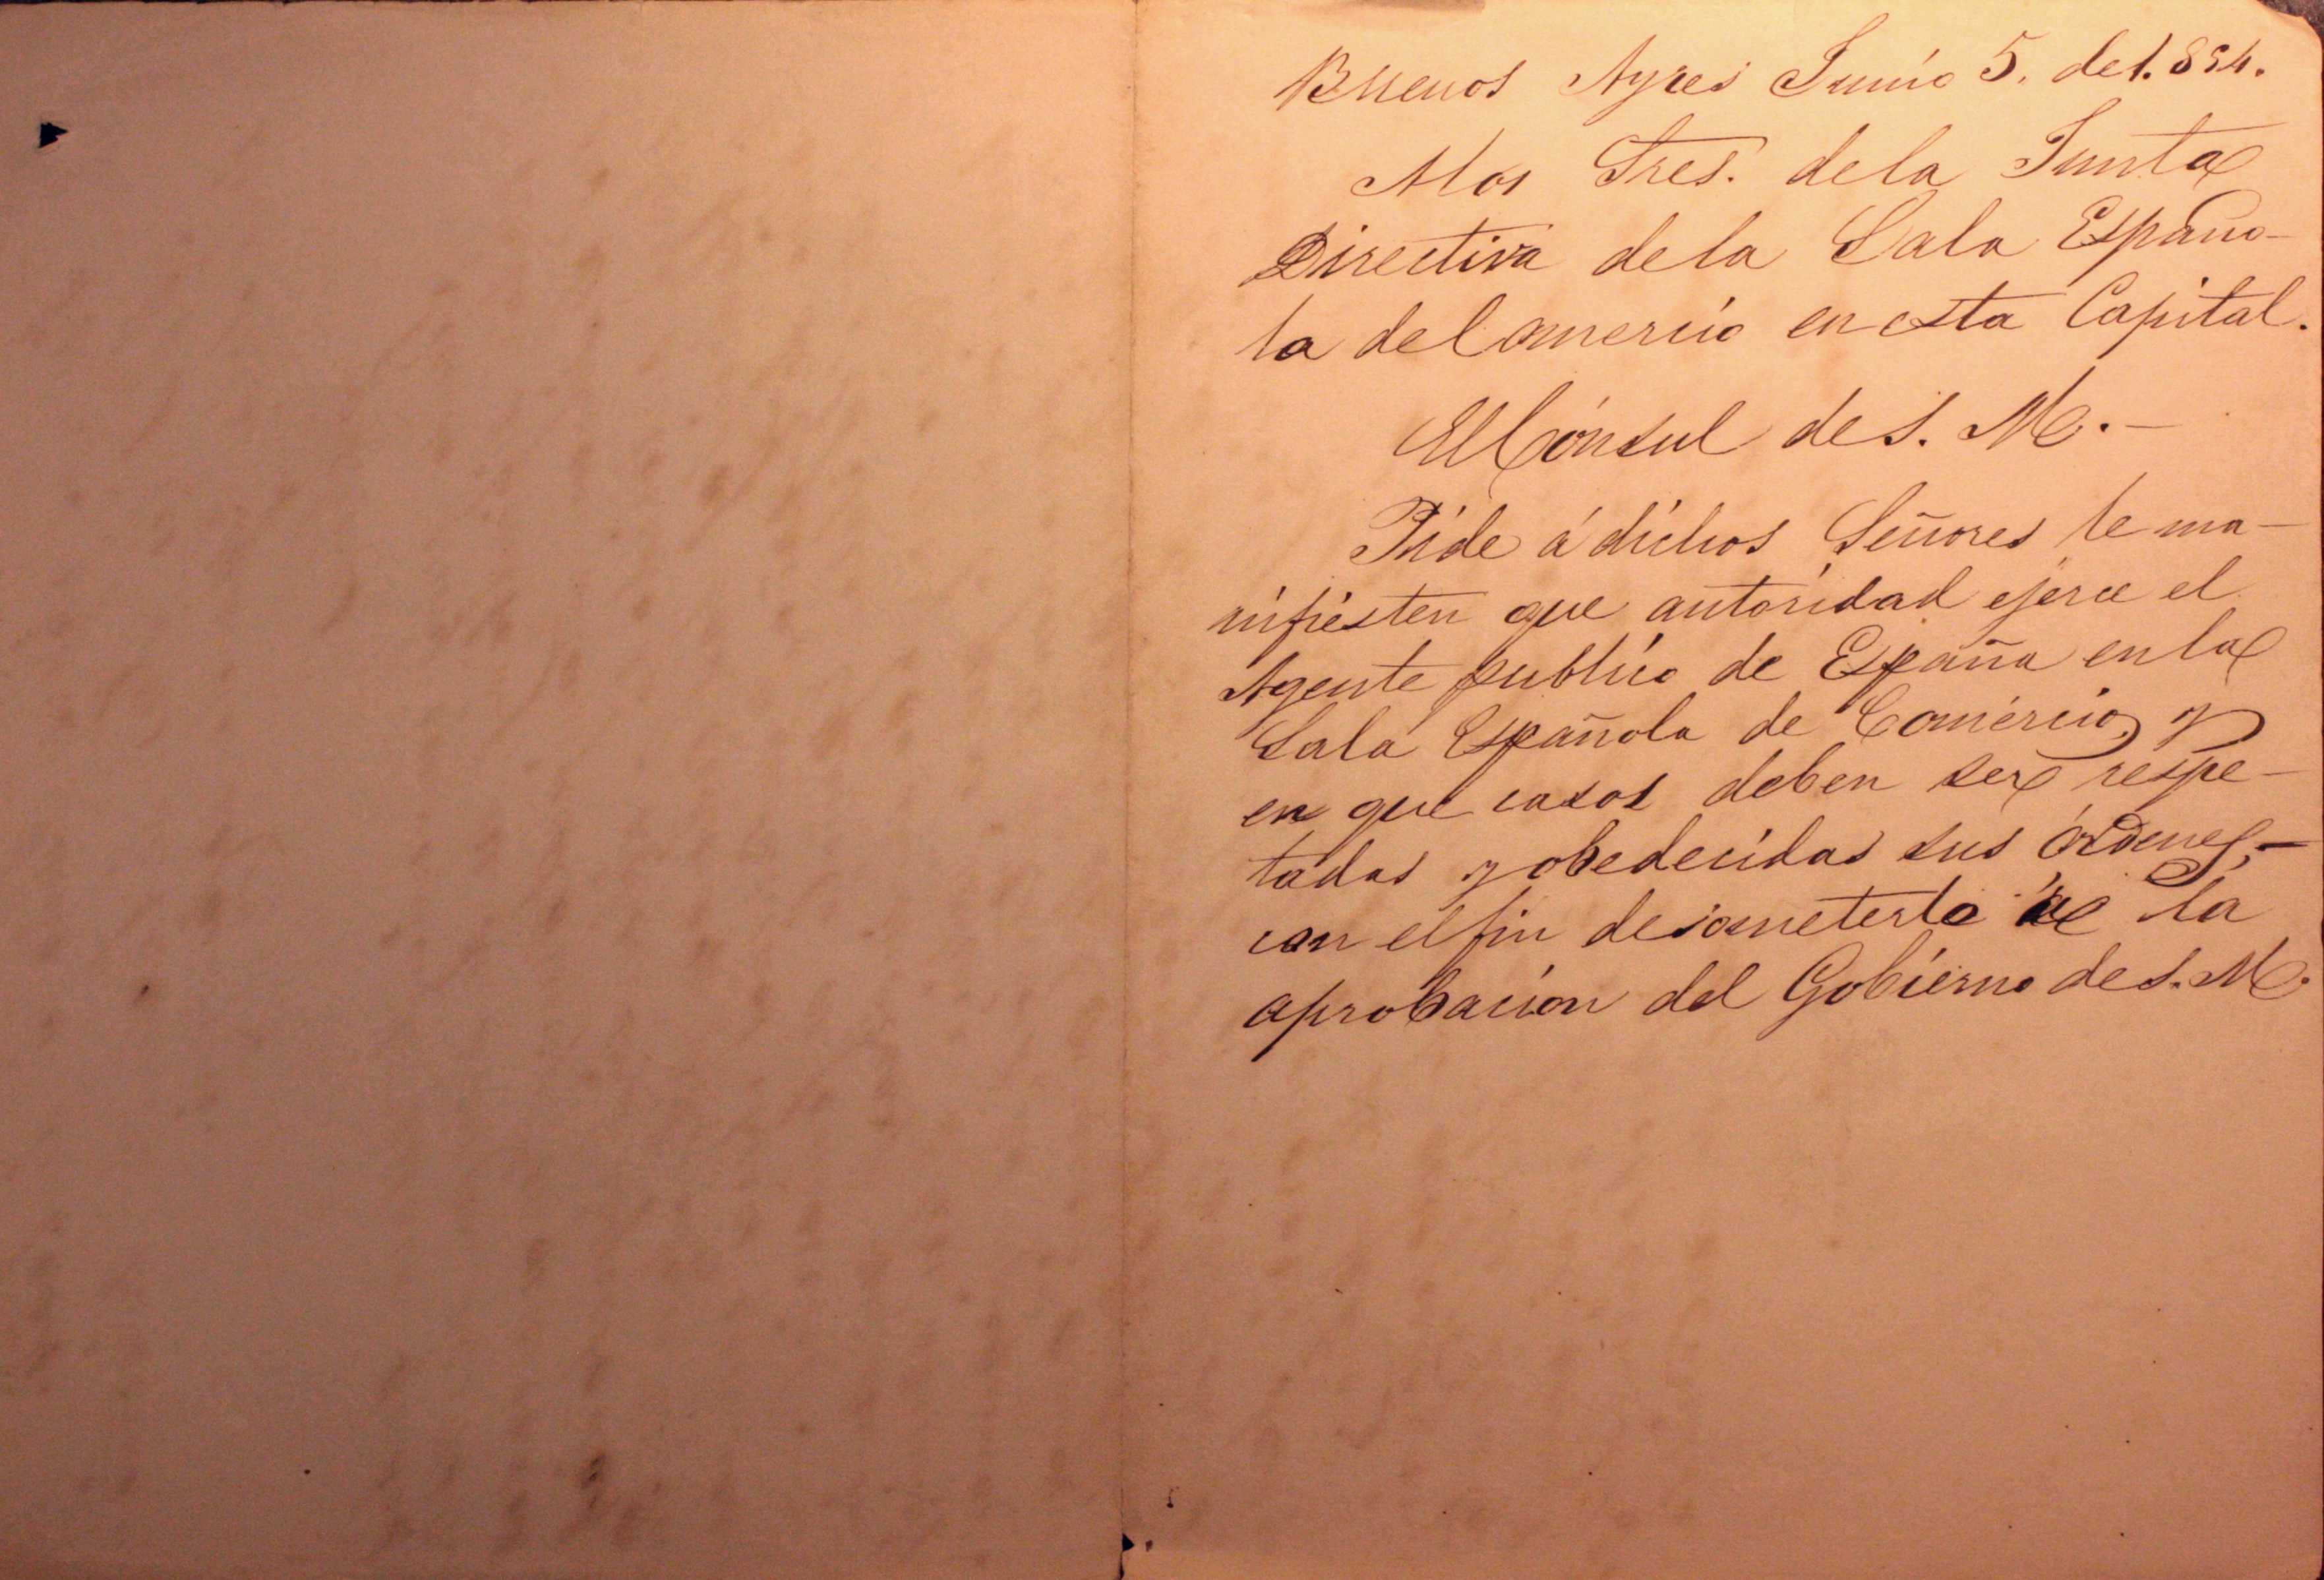 Buenos Ayres Junio 5. de 1.854.
A los Sres. de la Junta
Directiva de la Sala Españo-
la de Comercio en esta Capital.
El Cónsul de S. M. –
Pide á dichos Señores le ma-
nifiesten que autoridad ejerce el
Agente publico de España en la
Sala Española de Comercio, y
en que casos deben ser respe-
tadas y obedecidas sus órdenes, –
con el fin de someterlo á la
aprobacion del Gobierno de S. M.